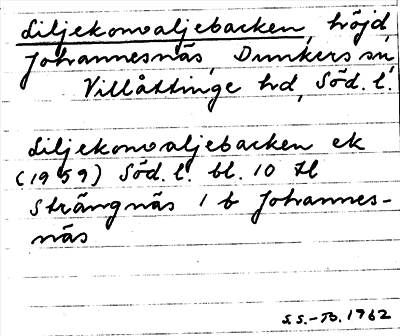 Liljekonvaljebacken, höjd,
Johannesnäs, Dunkers sn,
Villåttinge hd, Söd. l.
Liljekonvaljebacken ek
(1959) Söd. l. bl. 10 Hl
Strängnäs 1 b Johannes-
näs
S.S.-Tb. 1962